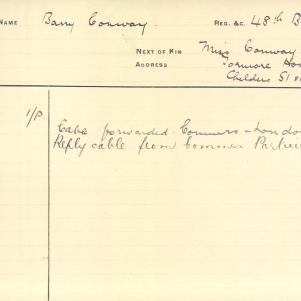 NAME Barry Conway. REG. &C. 48th B
NEXT OF KIN Miss Conway
ADDRESS Tormore Ho
Childers St
1/P. Cable forwarded Commrs - Londo
Reply cable from Commrs.